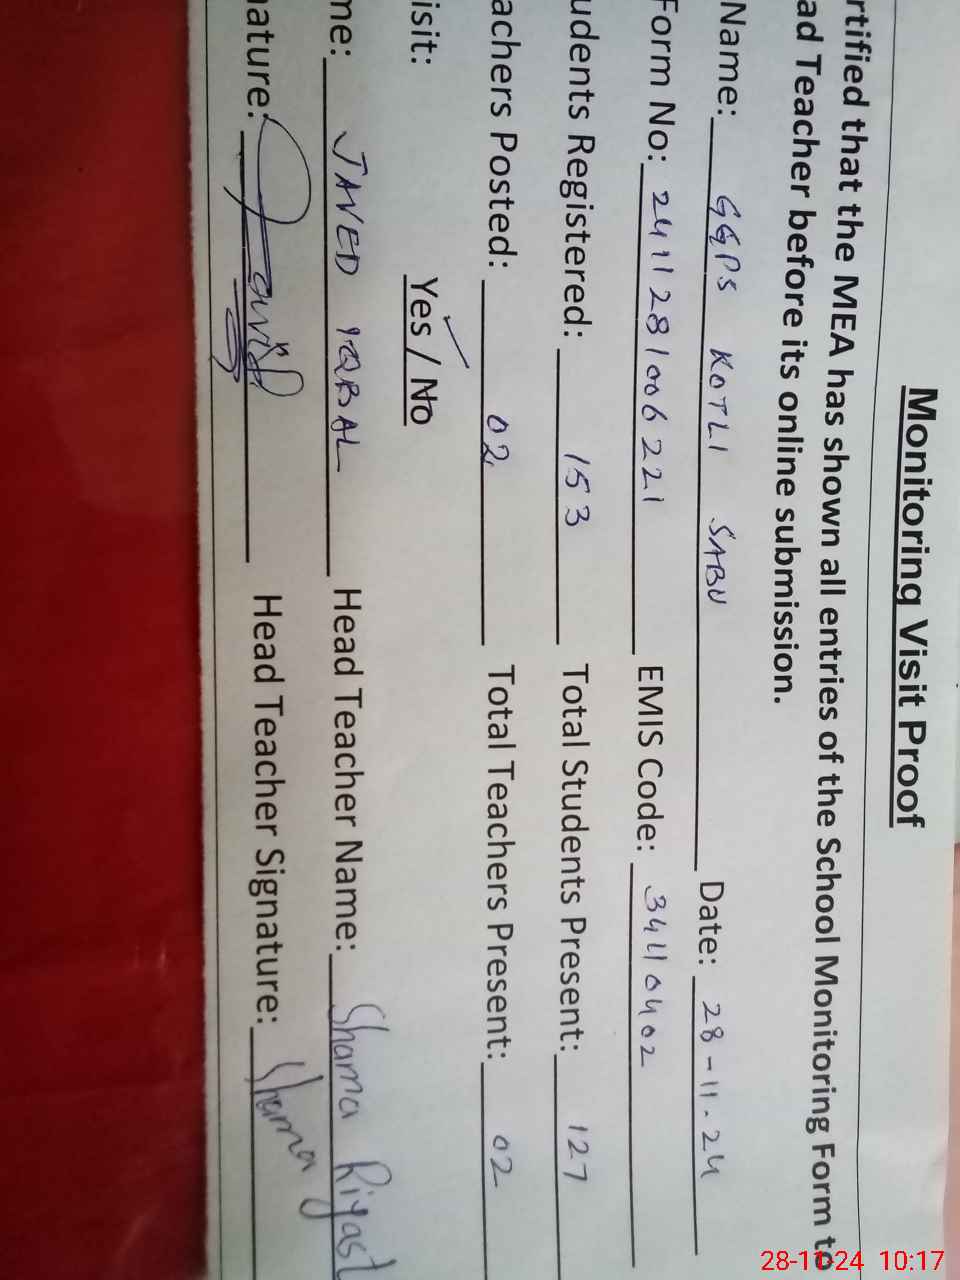 Monitoring Visit Proof
rtified that the MEA has shown all entries of the School Monitoring Form to
ad Teacher before its online submission.
Name: GGPS KOTLI SABU Date: 28-11-24
Form No: 2411281006221 EMIS Code: 34110402
udents Registered: 153 Total Students Present: 127
achers Posted: 02 Total Teachers Present: 02
isit: Yes / No
me: JAVED IQBAL Head Teacher Name: Shama Riyast
nature: Javid Head Teacher Signature: Shama
28-11-24 10:17